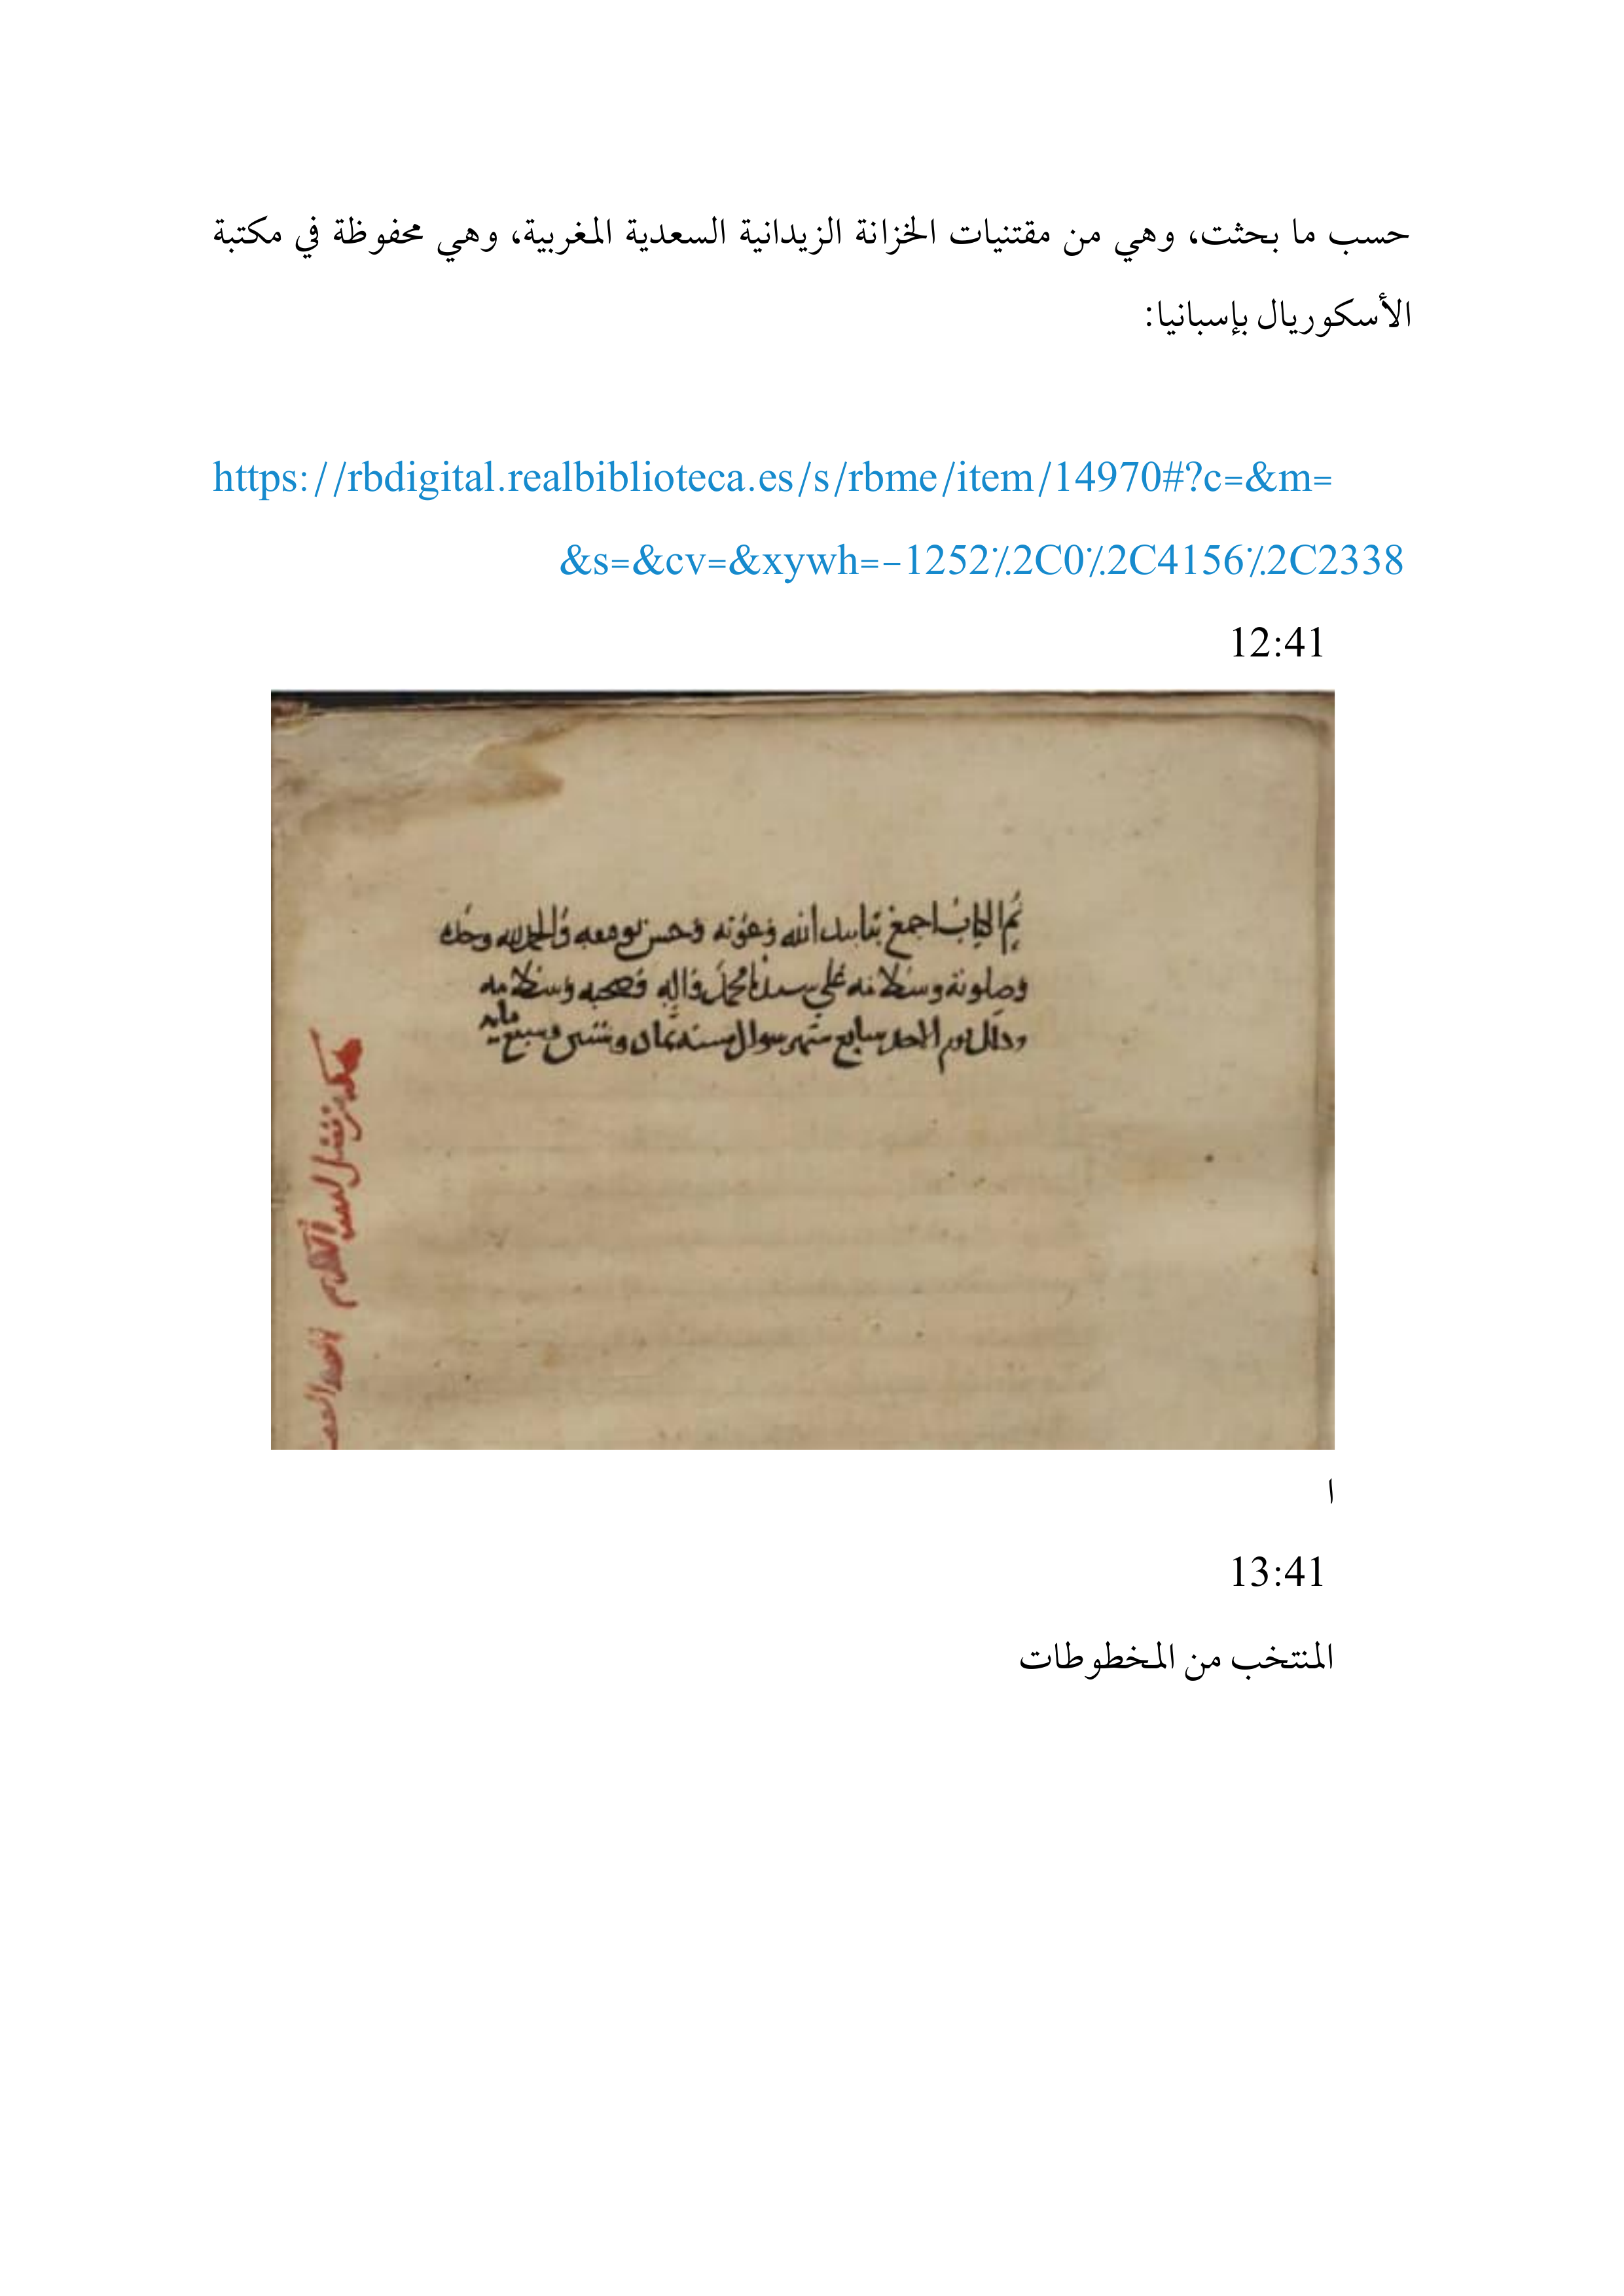 حسب ما بحثت، وهي من مقتنيات الخزانة الزيدانية السعدية المغربية، وهي محفوظة في مكتبة
الأسكوريال بإسبانيا:
https://rbdigital.realbiblioteca.es/s/rbme/item/14970#?c=&m=
&s=&cv=&xywh=-1252٪2C0٪2C4156٪2C2338
12:41
تم الكتاب اجمع بتاييد الله وعونه وحسن توفيقه والحمد لله وحده
وصلوته وسلامه على سيدنا محمد واله وصحبه وسلامه
وذلك يوم الاحد سابع شهر شوال سنه ثمان وستين وسبع مايه
ا
13:41
المنتخب من المخطوطات